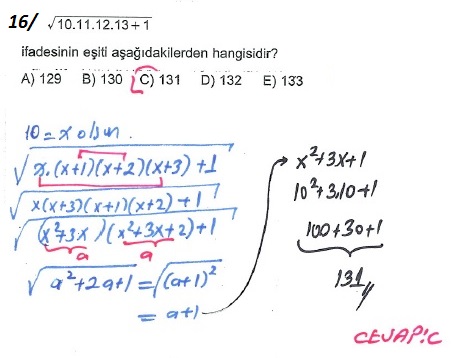 16/ √10.11.12.13+1
ifadesinin eşiti aşağıdakilerden hangisidir?
A) 129 B) 130 C) 131 D) 132 E) 133
10=x olsun.
√x.(x+1)(x+2)(x+3)+1
√x(x+3)(x+1)(x+2)+1
√(x²+3x)(x²+3x+2)+1
a a
√a²+2a+1 = √(a+1)²
= a+1
x²+3x+1
10²+3.10+1
100+30+1
131
CEVAP:C